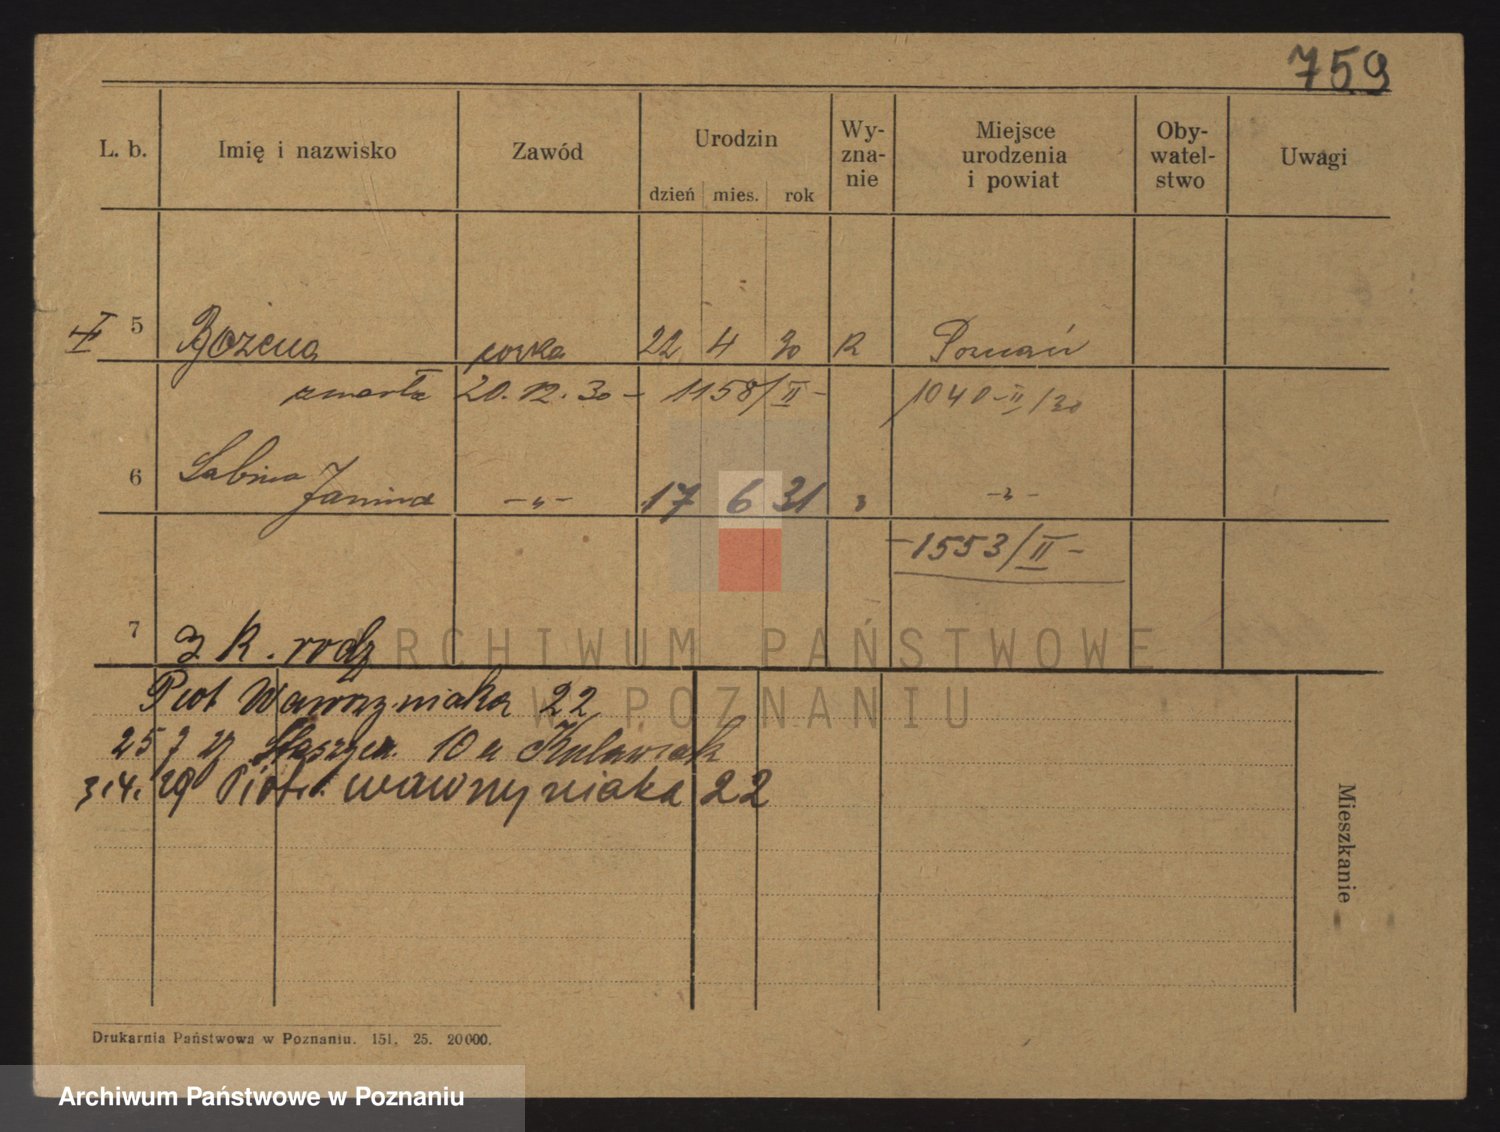 759
L. b. Imię i nazwisko Zawód Urodzin Wy-zna-nie Miejsce urodzenia i powiat Oby-watel-stwo Uwagi
dzień mies. rok
5 Bożena córka 22 4 30 R Poznań
zmarła 20. 12. 30 - 1158/II - 1040-II/30
6 Sabina
Janina -"- 17 6 31 " -"-
-1553/II-
7 z k. rodz
ARCHIWUM PAŃSTWOWE
W POZNANIU
Piot Wawrzyniaka 22
25 7 27 Staszyca 10 a Kulawiak
3.4. 29 Piotra Wawrzyniaka 22
Mieszkanie
Drukarnia Państwowa w Poznaniu. 151. 25. 20000.
Archiwum Państwowe w Poznaniu